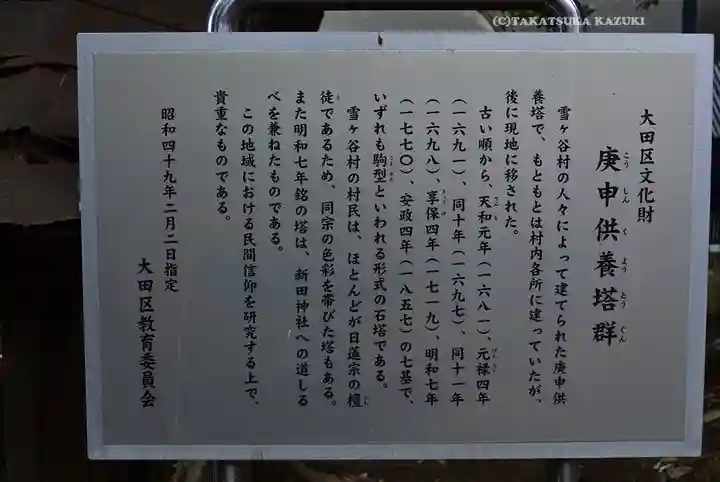 (C)TAKATSUKA KAZUKI
大田区文化財
庚申供養塔群
こうしんくようとうぐん
雪ヶ谷村の人々によって建てられた庚申供
養塔で、もともとは村内各所に建っていたが、
後に現地に移された。
古い順から、天和元年(一六八一)、元禄四年
てんな
げんろく
(一六九一)、同十年(一六九七)、同十一年
(一六九八)、享保四年(一七一九)、明和七年
(一七七〇)、安政四年(一八五七)の七基で、
いずれも駒型といわれる形式の石塔である。
雪ヶ谷村の村民は、ほとんどが日蓮宗の檀
だん
徒であるため、同宗の色彩を帯びた塔もある。
と
また明和七年銘の塔は、新田神社への道しる
べを兼ねたものである。
この地域における民間信仰を研究する上で、
貴重なものである。
昭和四十九年二月二日指定
大田区教育委員会